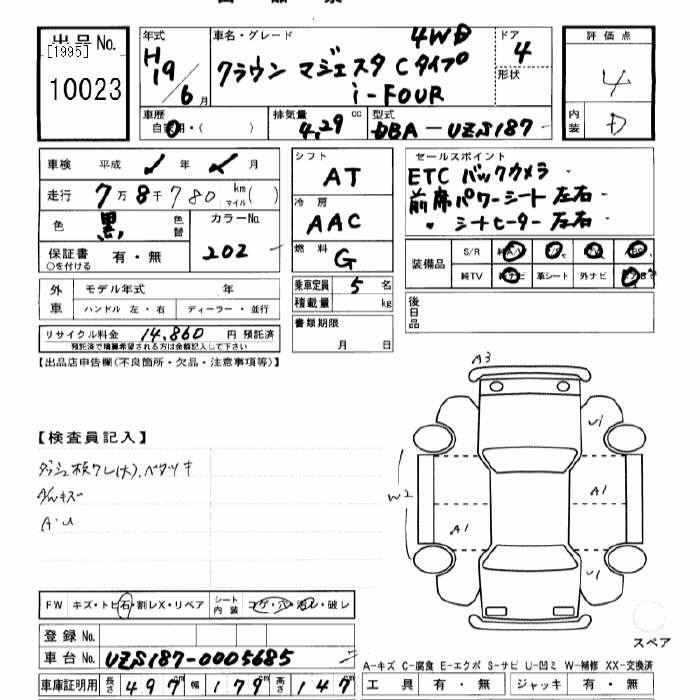 出品No. [1995]
10023
年式 H19/6月
車名・グレード 4WD
クラウン マジェスタ Cタイプ
i-FOUR
ドア 4
形状
評価点 4
内装 D
車歴 自家用・( )
排気量 4.29 cc
型式 DBA-UZS187
車検 平成 年 月
走行 7万8千780 km マイル( )
色 黒 色替
カラーNo. 202
保証書 有・無
○を付ける
シフト AT
冷房 AAC
燃料 G
乗車定員 5名
積載量 kg
書類期限
月 日
セールスポイント
ETC バックカメラ
前席パワーシート左右
シートヒーター左右
装備品 S/R
純TV 純ナビ 革シート 外ナビ
後日品
外車 モデル年式 年
ハンドル 左・右 ディーラー・並行
リサイクル料金 14,860 円 預託済
預託済で積算希望される方は金額記入して下さい
【出品店申告欄(不良箇所・欠品・注意事項等)】
【検査員記入】
ダッシュ板ワレ(大)、ベタツキ
A・U
A3
U1
W2
A1
A1
U1
FW キズ・トビ石・割レX・リペア
シート内装 コゲ・穴・汚レ・破レ
登録No.
車台No. UZS187-0005685
車庫証明用 長さ 497cm 幅 179cm 高さ 147cm
スペア
A-キズ C-腐食 E-エクボ S-サビ U-凹ミ W-補修 XX-交換済
工具 有・無 ジャッキ 有・無